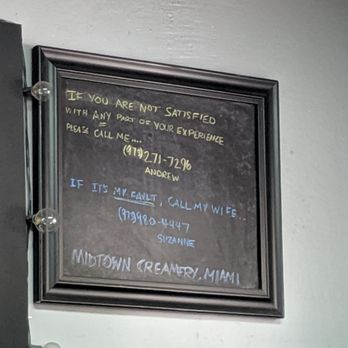 IF YOU ARE NOT SATISFIED
WITH ANY PART OF YOUR EXPERIENCE
PLEASE CALL ME....
(979)271-7296
ANDREW
IF IT'S MY FAULT, CALL MY WIFE...
(979)980-4447
SUZANNE
MIDTOWN CREAMERY, MIAMI